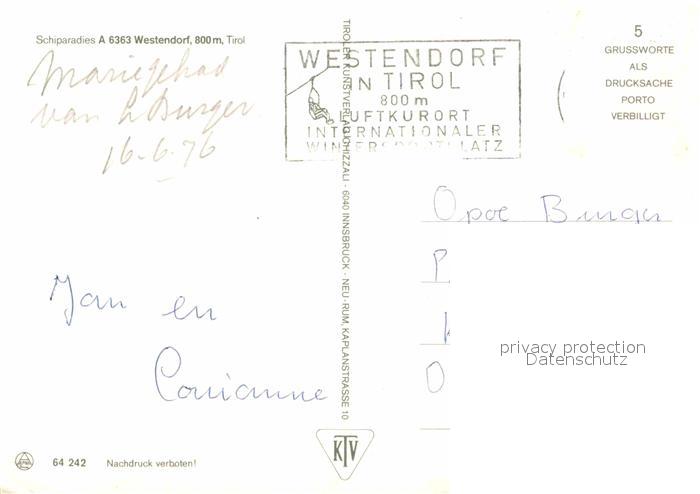 Schiparadies A 6363 Westendorf, 800 m, Tirol
van L Burger
16-6-76
WESTENDORF
IN TIROL
800 m
LUFTKURORT
INTERNATIONALER
WINTERSPORTPLATZ
5
GRUSSWORTE
ALS
DRUCKSACHE
PORTO
VERBILLIGT
TIROLER KUNSTVERLAG CHIZZALI · 6040 INNSBRUCK · NEU-RUM, KAPLANSTRASSE 10
Opoe Burger
P
O
Jan en
privacy protection
Datenschutz
KTV
64 242 Nachdruck verboten!